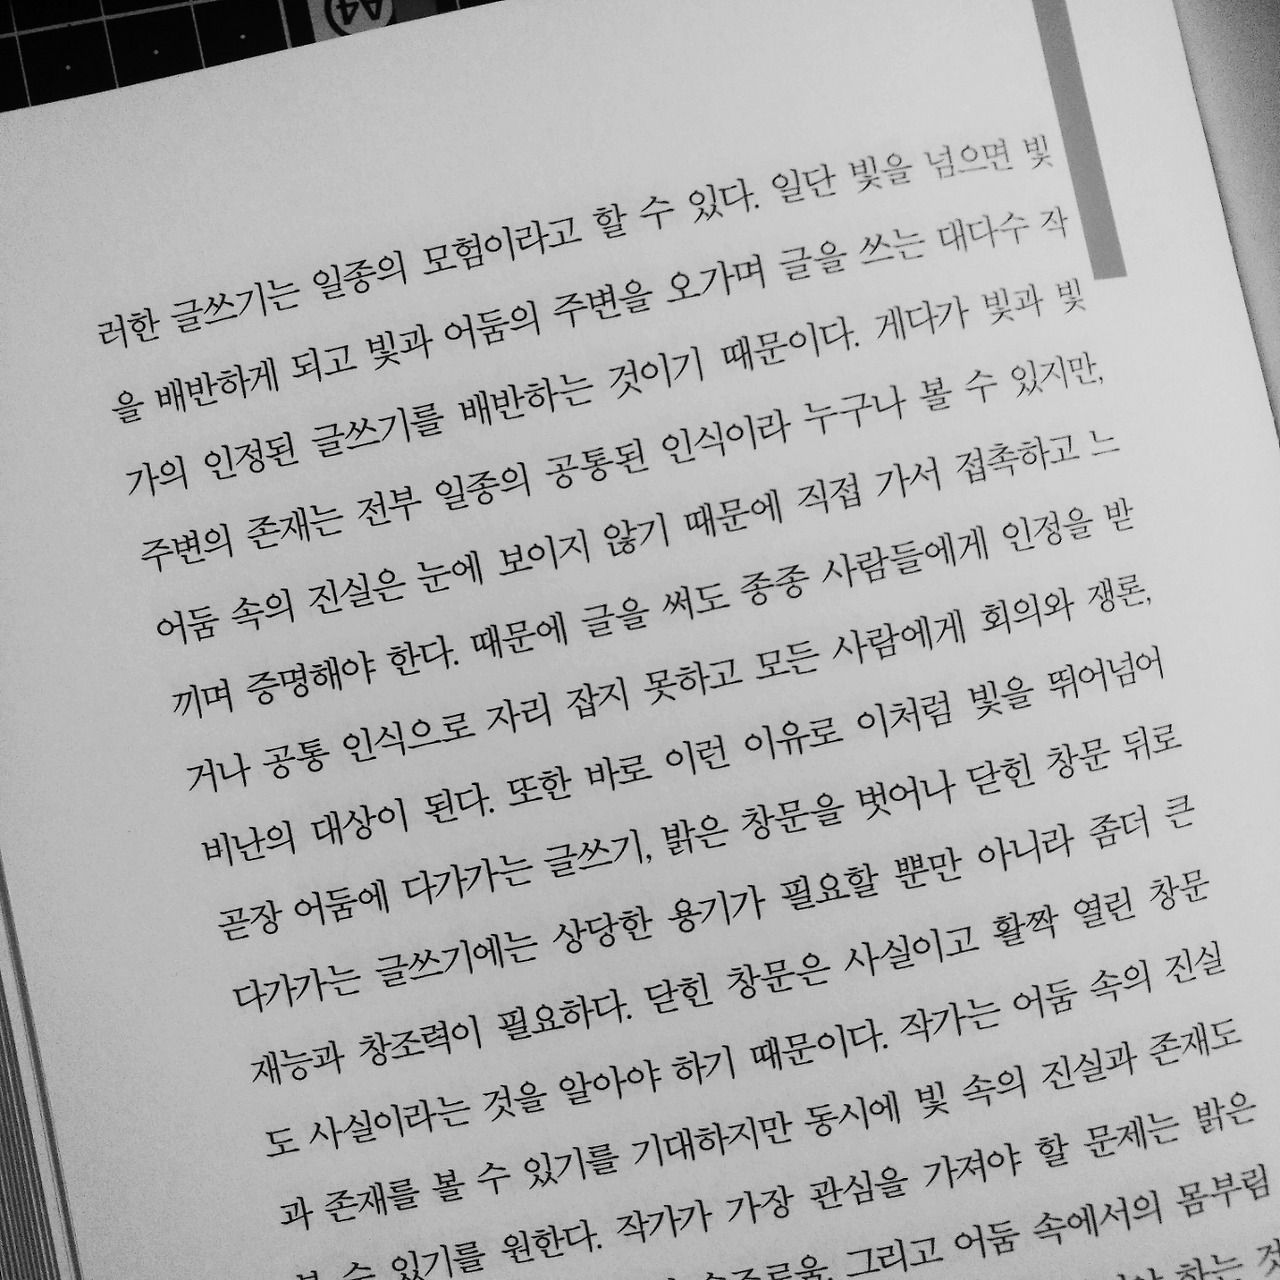 A4
러한 글쓰기는 일종의 모험이라고 할 수 있다. 일단 빛을 넘으면 빛
을 배반하게 되고 빛과 어둠의 주변을 오가며 글을 쓰는 대다수 작
가의 인정된 글쓰기를 배반하는 것이기 때문이다. 게다가 빛과 빛
주변의 존재는 전부 일종의 공통된 인식이라 누구나 볼 수 있지만,
어둠 속의 진실은 눈에 보이지 않기 때문에 직접 가서 접촉하고 느
끼며 증명해야 한다. 때문에 글을 써도 종종 사람들에게 인정을 받
거나 공통 인식으로 자리 잡지 못하고 모든 사람에게 회의와 쟁론,
비난의 대상이 된다. 또한 바로 이런 이유로 이처럼 빛을 뛰어넘어
곧장 어둠에 다가가는 글쓰기, 밝은 창문을 벗어나 닫힌 창문 뒤로
다가가는 글쓰기에는 상당한 용기가 필요할 뿐만 아니라 좀더 큰
재능과 창조력이 필요하다. 닫힌 창문은 사실이고 활짝 열린 창문
도 사실이라는 것을 알아야 하기 때문이다. 작가는 어둠 속의 진실
과 존재를 볼 수 있기를 기대하지만 동시에 빛 속의 진실과 존재도
볼 수 있기를 원한다. 작가가 가장 관심을 가져야 할 문제는 밝은
그리고 어둠 속에서의 몸부림
하는